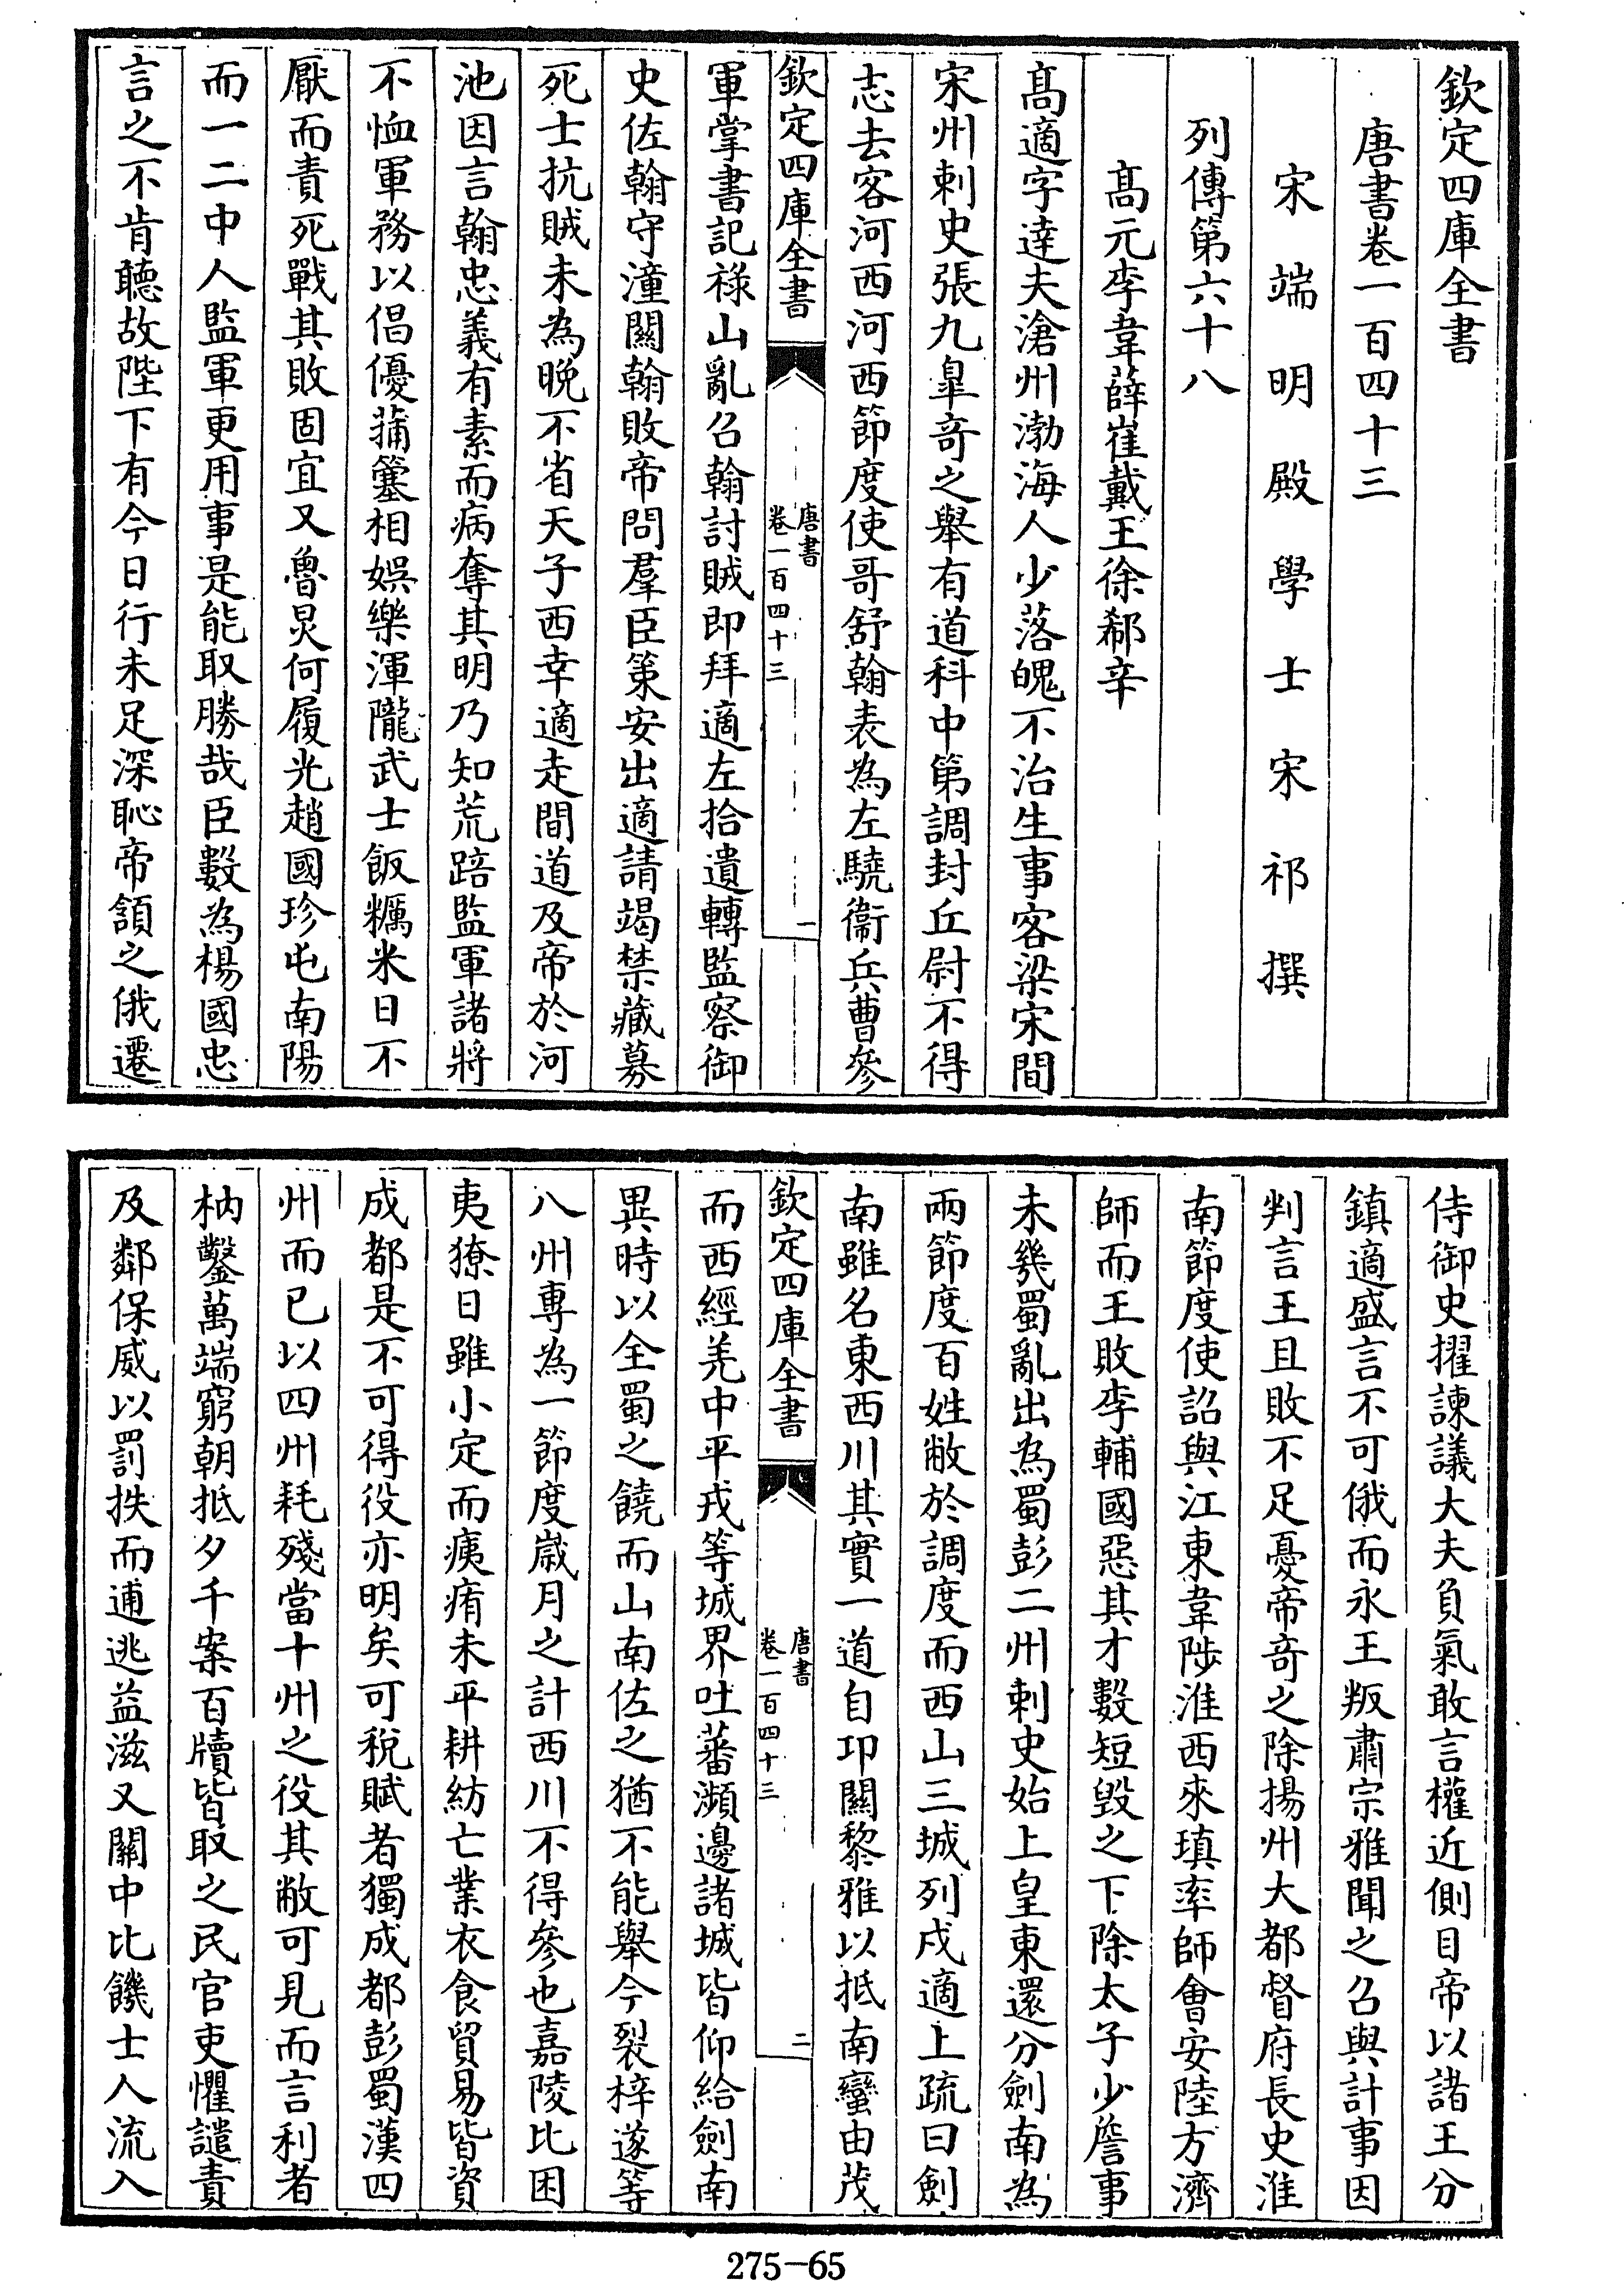 欽定四庫全書
唐書卷一百四十三
宋端明殿學士宋祁撰
列傳第六十八
髙元李韋薛崔戴王徐郗辛
髙適字達夫滄州渤海人少落魄不治生事客梁宋間
宋州刺史張九臯奇之舉有道科中第調封丘尉不得
志去客河西河西節度使哥舒翰表為左驍衛兵曹參
欽定四庫全書
唐書
卷一百四十三
一
軍掌書記祿山亂召翰討賊即拜適左拾遺轉監察御
史佐翰守潼關翰敗帝問羣臣策安出適請竭禁藏募
死士抗賊未為晚不省天子西幸適走間道及帝於河
池因言翰忠義有素而病奪其明乃知荒踣監軍諸將
不恤軍務以倡優蒱簺相娛樂渾隴武士飯糲米日不
厭而責死戰其敗固宜又魯炅何履光趙國珍屯南陽
而一二中人監軍更用事是能取勝哉臣數為楊國忠
言之不肯聽故陛下有今日行未足深恥帝頷之俄遷
侍御史擢諫議大夫負氣敢言權近側目帝以諸王分
鎮適盛言不可俄而永王叛肅宗雅聞之召與計事因
判言王且敗不足憂帝奇之除揚州大都督府長史淮
南節度使詔與江東韋陟淮西來瑱率師會安陸方濟
師而王敗李輔國惡其才數短毀之下除太子少詹事
未幾蜀亂出為蜀彭二州刺史始上皇東還分劍南為
兩節度百姓敝於調度而西山三城列戍適上疏曰劍
南雖名東西川其實一道自邛關黎雅以抵南蠻由茂
欽定四庫全書
唐書
卷一百四十三
二
而西經羌中平戎等城界吐蕃瀕邊諸城皆仰給劍南
異時以全蜀之饒而山南佐之猶不能舉今裂梓遂等
八州專為一節度嵗月之計西川不得參也嘉陵比困
夷獠日雖小定而痍痏未平耕紡亡業衣食貿易皆資
成都是不可得役亦明矣可稅賦者獨成都彭蜀漢四
州而已以四州耗殘當十州之役其敝可見而言利者
枘鑿萬端窮朝抵夕千案百牘皆取之民官吏懼譴責
及鄰保威以罰抶而逋逃益滋又關中比饑士人流入
275-65